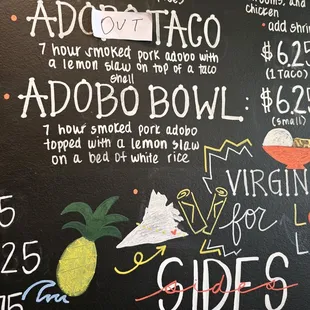 chicken
ADOBO TACO
OUT
7 hour smoked pork adobo with
a lemon slaw on top of a taco
shell
• add
$6.25
(1 taco)
• ADOBO BOWL:
$6.25
(small)
7 hour smoked pork adobo
topped with a lemon slaw
on a bed of white rice
25
for
SIDES
sides